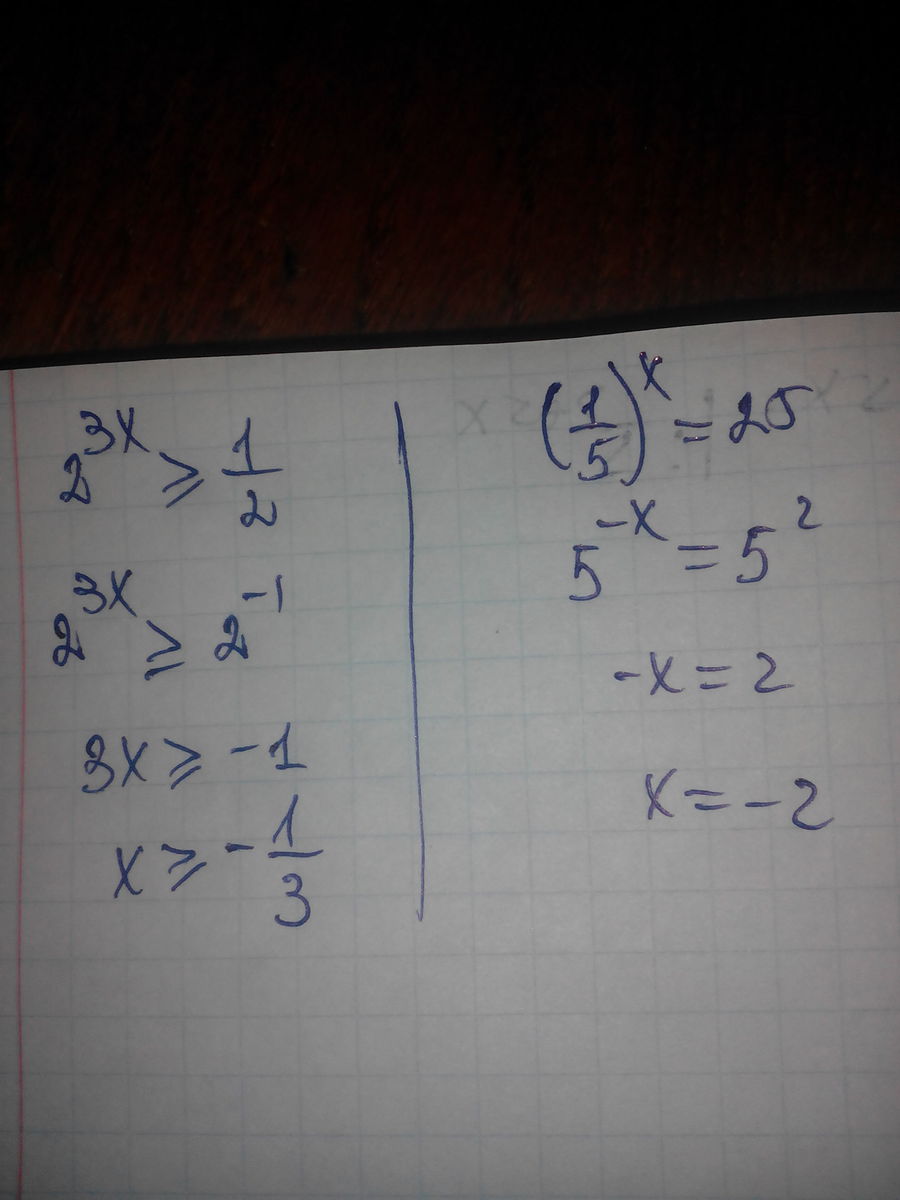 2^{3x} ⩾ 1/2
2^{3x} ⩾ 2^{-1}
3x ⩾ -1
x ⩾ -1/3
(1/5)^x = 25
5^{-x} = 5^2
-x = 2
x = -2